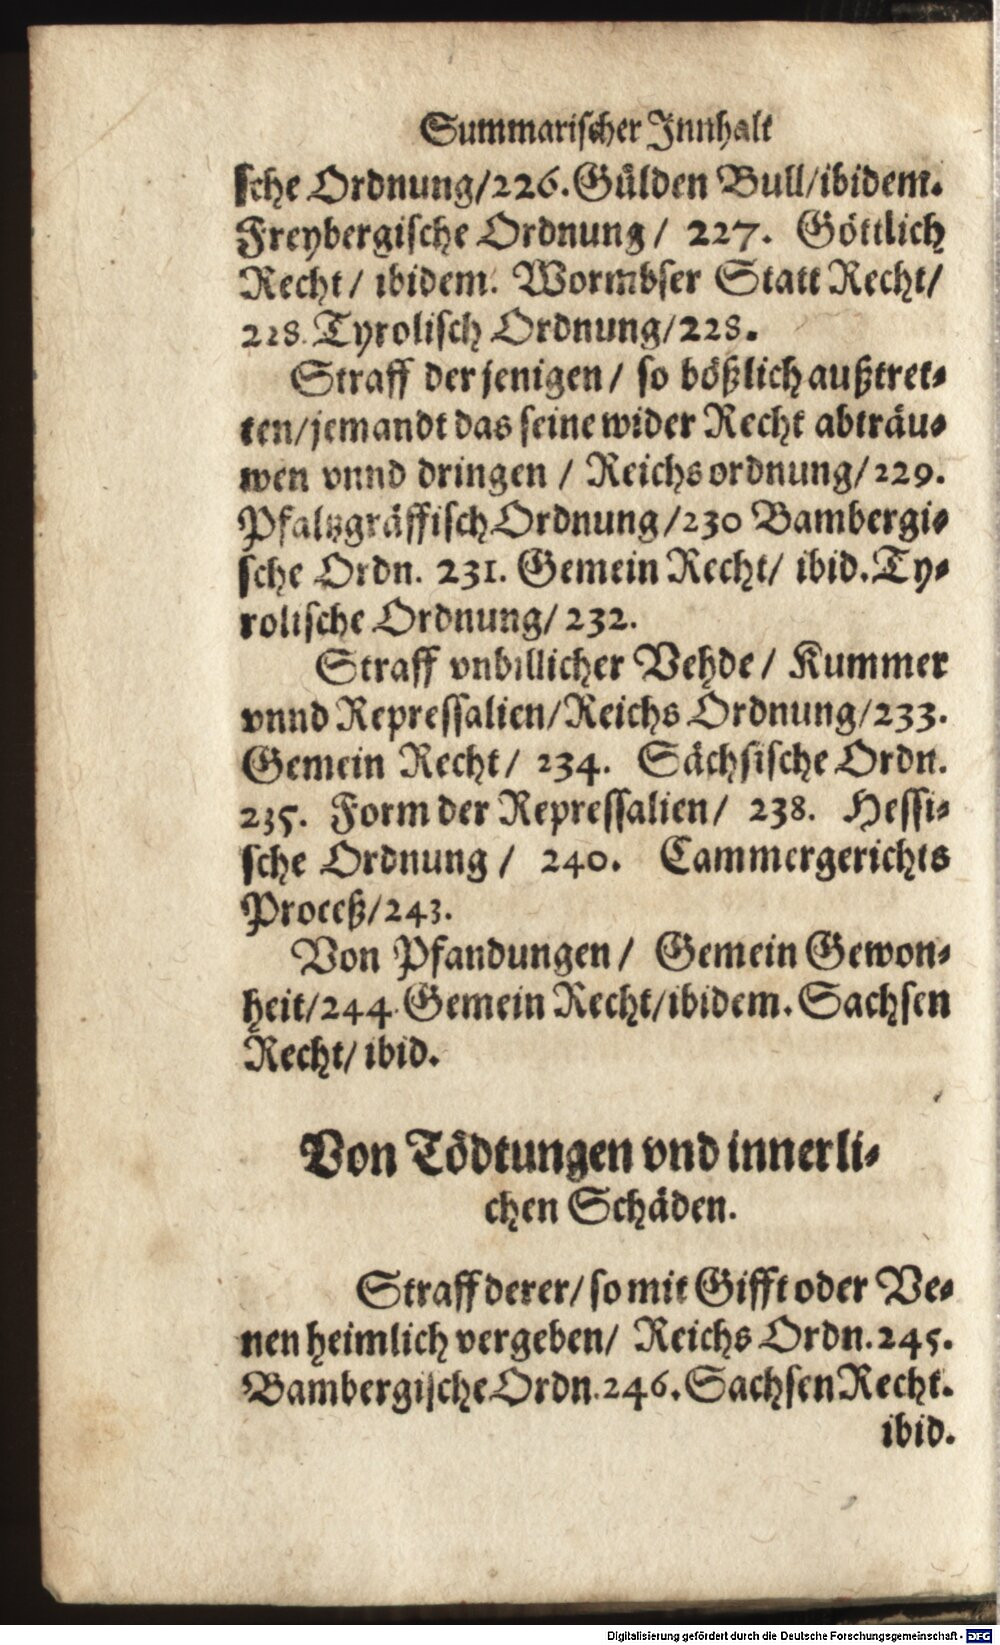 Summarischer Innhalt
sche Ordnung/226. Gülden Bull/ibidem.
Freybergische Ordnung / 227. Göttlich
Recht/ ibidem. Wormbser Statt Recht/
228. Tyrolisch Ordnung/228.
Straff der jenigen/ so bößlich außtret-
ten/jemandt das seine wider Recht abträu-
wen vnnd dringen / Reichsordnung/229.
Pfaltzgräffisch Ordnung/230 Bambergi-
sche Ordn. 231. Gemein Recht/ ibid. Ty-
rolische Ordnung/ 232.
Straff vnbillicher Vehde/ Kummer
vnnd Repressalien/Reichs Ordnung/233.
Gemein Recht/ 234. Sächsische Ordn.
235. Form der Repressalien/ 238. Hessi-
sche Ordnung / 240. Cammergerichts
Proceß/243.
Von Pfandungen/ Gemein Gewon-
heit/244. Gemein Recht/ibidem. Sachsen
Recht/ ibid.
Von Tödtungen vnd innerli-
chen Schäden.
Straff derer/ so mit Gifft oder Ve-
nen heimlich vergeben/ Reichs Ordn. 245.
Bambergische Ordn. 246. Sachsen Recht.
ibid.
Digitalisierung gefördert durch die Deutsche Forschungsgemeinschaft - DFG